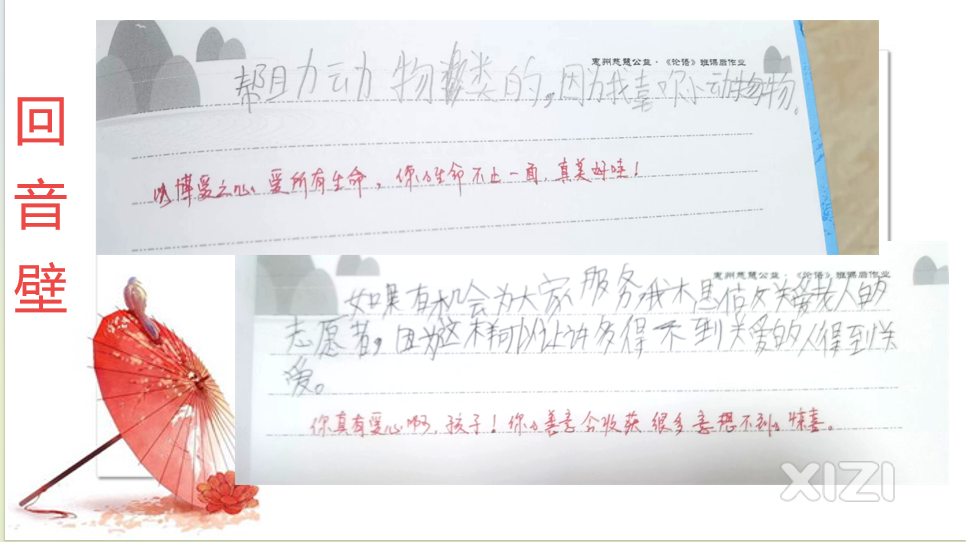 回
音
壁
惠州慈慧公益·《论语》班课后作业
帮助动物类的,因为我喜欢小动物。
以博爱之心,爱所有生命,你的生命不止一面,真美好哇!
惠州慈慧公益·《论语》班课后作业
如果有机会为大家服务我想做关爱老人的
志愿者,因为这样可以让许多得不到关爱的人得到关
爱。
你真有爱心啊,孩子!你的善意会收获很多意想不到的惊喜。
XIZI